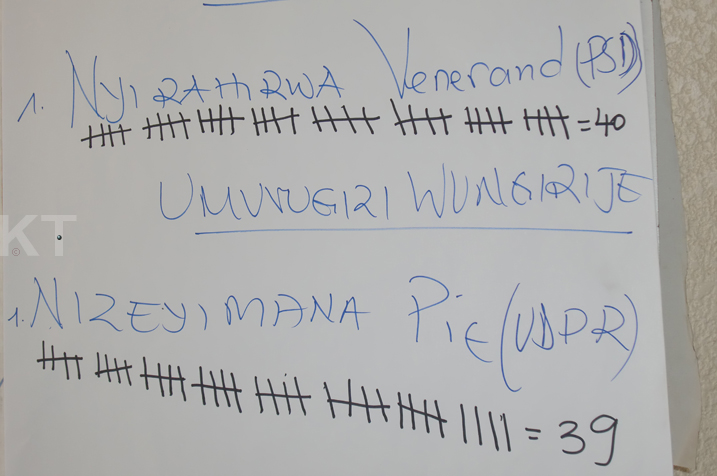 1. NYIRAHIRWA Venerand (PSD)
= 40
UMUVUGIZI WUNGIRIJE
1. NIZEYIMANA Pie (UDPR)
= 39
KT